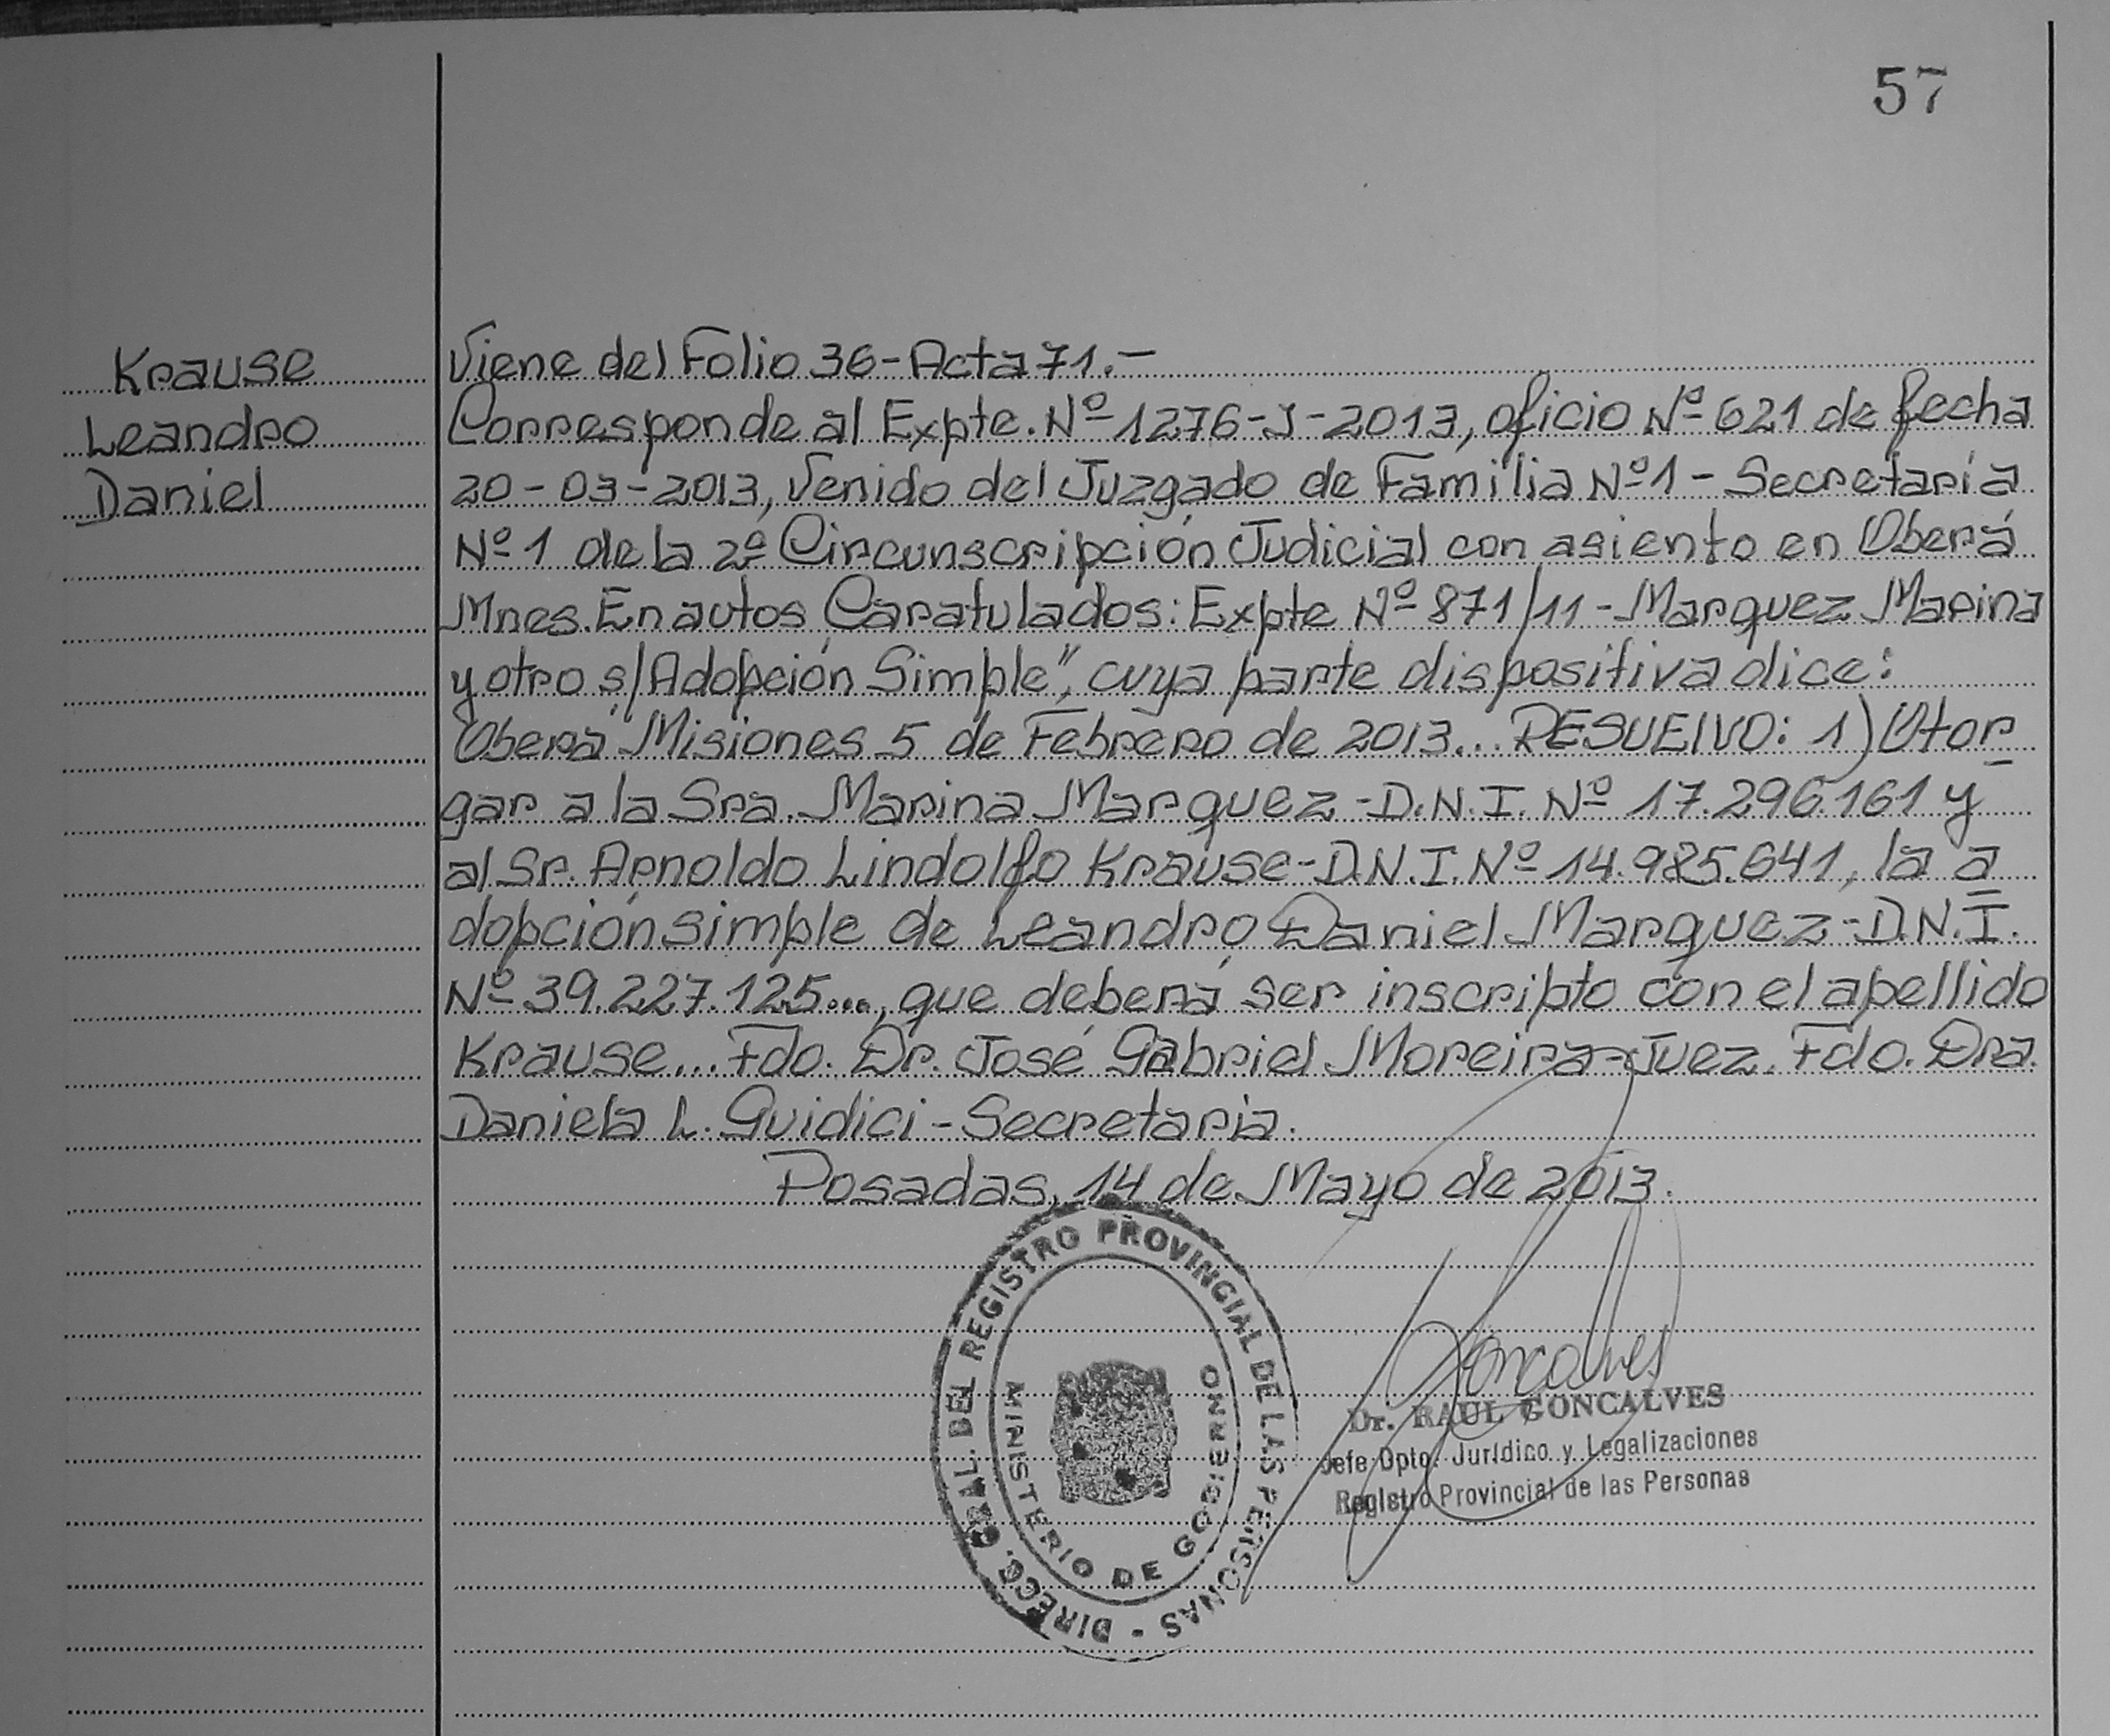 57
Krause
Leandro
Daniel
Viene del Folio 36-Acta 71.-
Corresponde al Expte. Nº 1276-J-2013, oficio Nº 621 de fecha
20-03-2013, venido del Juzgado de Familia Nº1 - Secretaría
Nº 1 de la 2º Circunscripción Judicial con asiento en Oberá
Mnes. En autos Caratulados: Expte Nº 871/11 - Marquez Marina
y otro s/Adopción Simple", cuya parte dispositiva dice:
Oberá Misiones 5 de Febrero de 2013... RESUELVO: 1) Otor
gar a la Sra. Marina Marquez - D.N.I. Nº 17.296.161 y
al Sr. Arnoldo Lindolfo Krause - D.N.I. Nº 14.985.641, la a
dopción simple de Leandro Daniel Marquez - D.N.I.
Nº 39.227.125..., que deberá ser inscripto con el apellido
Krause... Fdo. Dr. José Gabriel Moreira - Juez. Fdo. Dra.
Daniela L. Guidici - Secretaria.
Posadas, 14 de Mayo de 2013.
DIRECC. GRAL. DEL REGISTRO PROVINCIAL DE LAS PERSONAS -
MINISTERIO DE GOBIERNO
Goncalves
Dr. RAUL GONCALVES
Jefe Dpto. Jurídico y Legalizaciones
Registro Provincial de las Personas